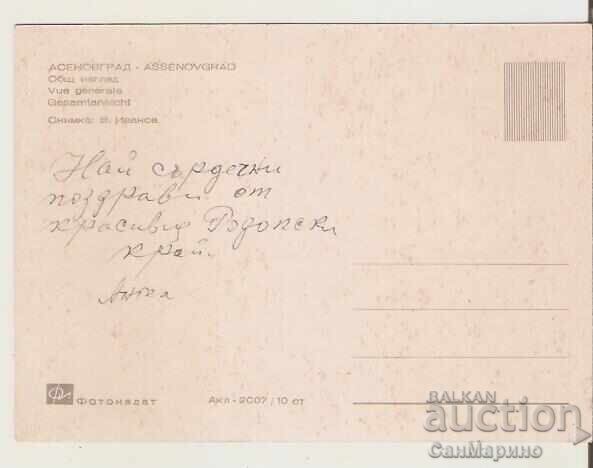 АСЕНОВГРАД - ASSENOVGRAD
Общ изглед
Vue generale
Gesamtansicht
Снимка: В. Иванов
Най сърдечни
поздрави от
красивия Родопски
край.
Анка
Фотоиздат
Акл - 2007 / 10 ст
BALKAN
auction
СанМарино